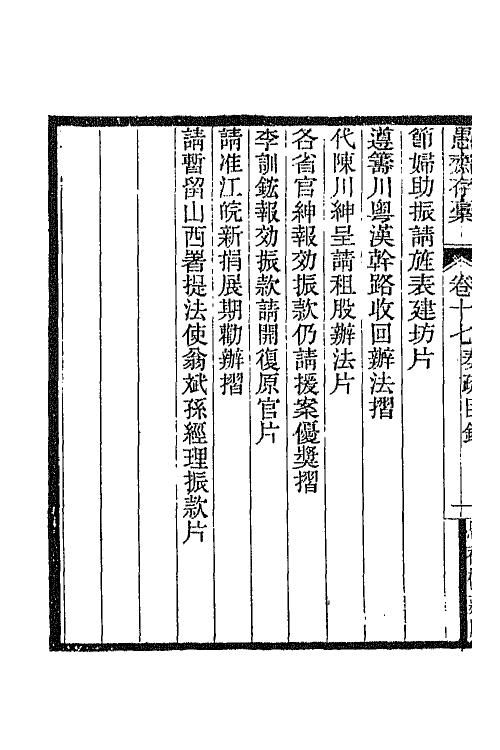 愚齋存稾
卷十七奏疏目錄
節婦助振請旌表建坊片
遵籌川粵漢幹路收回辦法摺
代陳川紳呈請租股辦法片
各省官紳報効振款仍請援案優獎摺
李訓鋐報効振款請開復原官片
請准江皖新捐展期勸辦摺
請暫留山西署提法使翁斌孫經理振款片